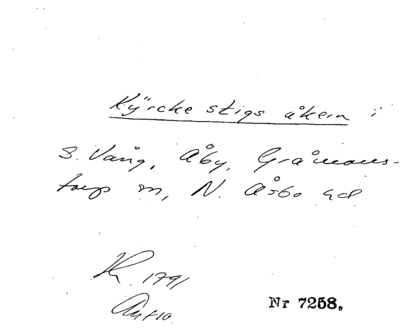 Kÿrcke stigs åkern i
S. Vång, Åby, Gråmans-
torp sn, N. Åsbo hd
1791
Nr 7258.